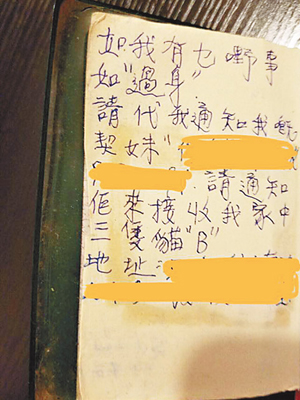 如我有乜嘢事
如"過身"
請代我通知我嘅
契妹"
請通知
佢來接收我家中
三隻貓"B"
地址